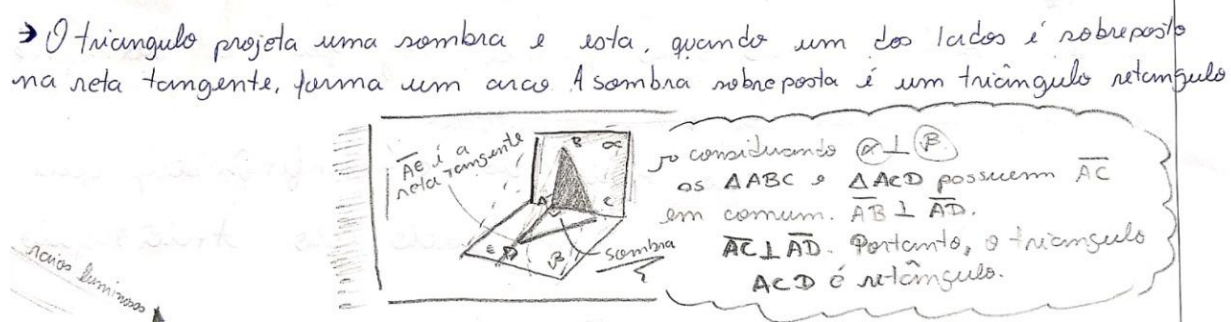 → O triangulo projeta uma sombra e esta, quando um dos lados é sobreposto
na reta tangente, forma um arco. A sombra sobreposta é um triângulo retangulo
AE é a
reta tangente
B
α
A
C
E
D
β
sombra
considerando α ⊥ β
os ΔABC e ΔACD possuem AC
em comum. AB ⊥ AD.
AC ⊥ AD. Portanto, o triangulo
ACD é retângulo.
raios luminosos